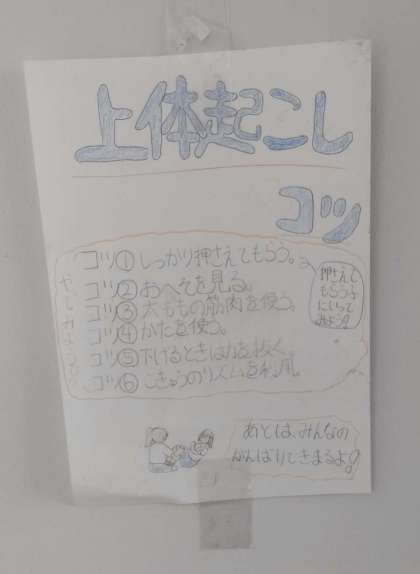 上体起こし
コツ
コツ①しっかり押さえてもらう。
コツ②おへそを見る。
コツ③太ももの筋肉を使う。
コツ④かたを使う。
コツ⑤下げるときは力を抜く。
コツ⑥こきゅうのリズムを利用。
押さえて
もらうよ
にいって
みよう!
あとは、みんなの
がんばりできまるよ!